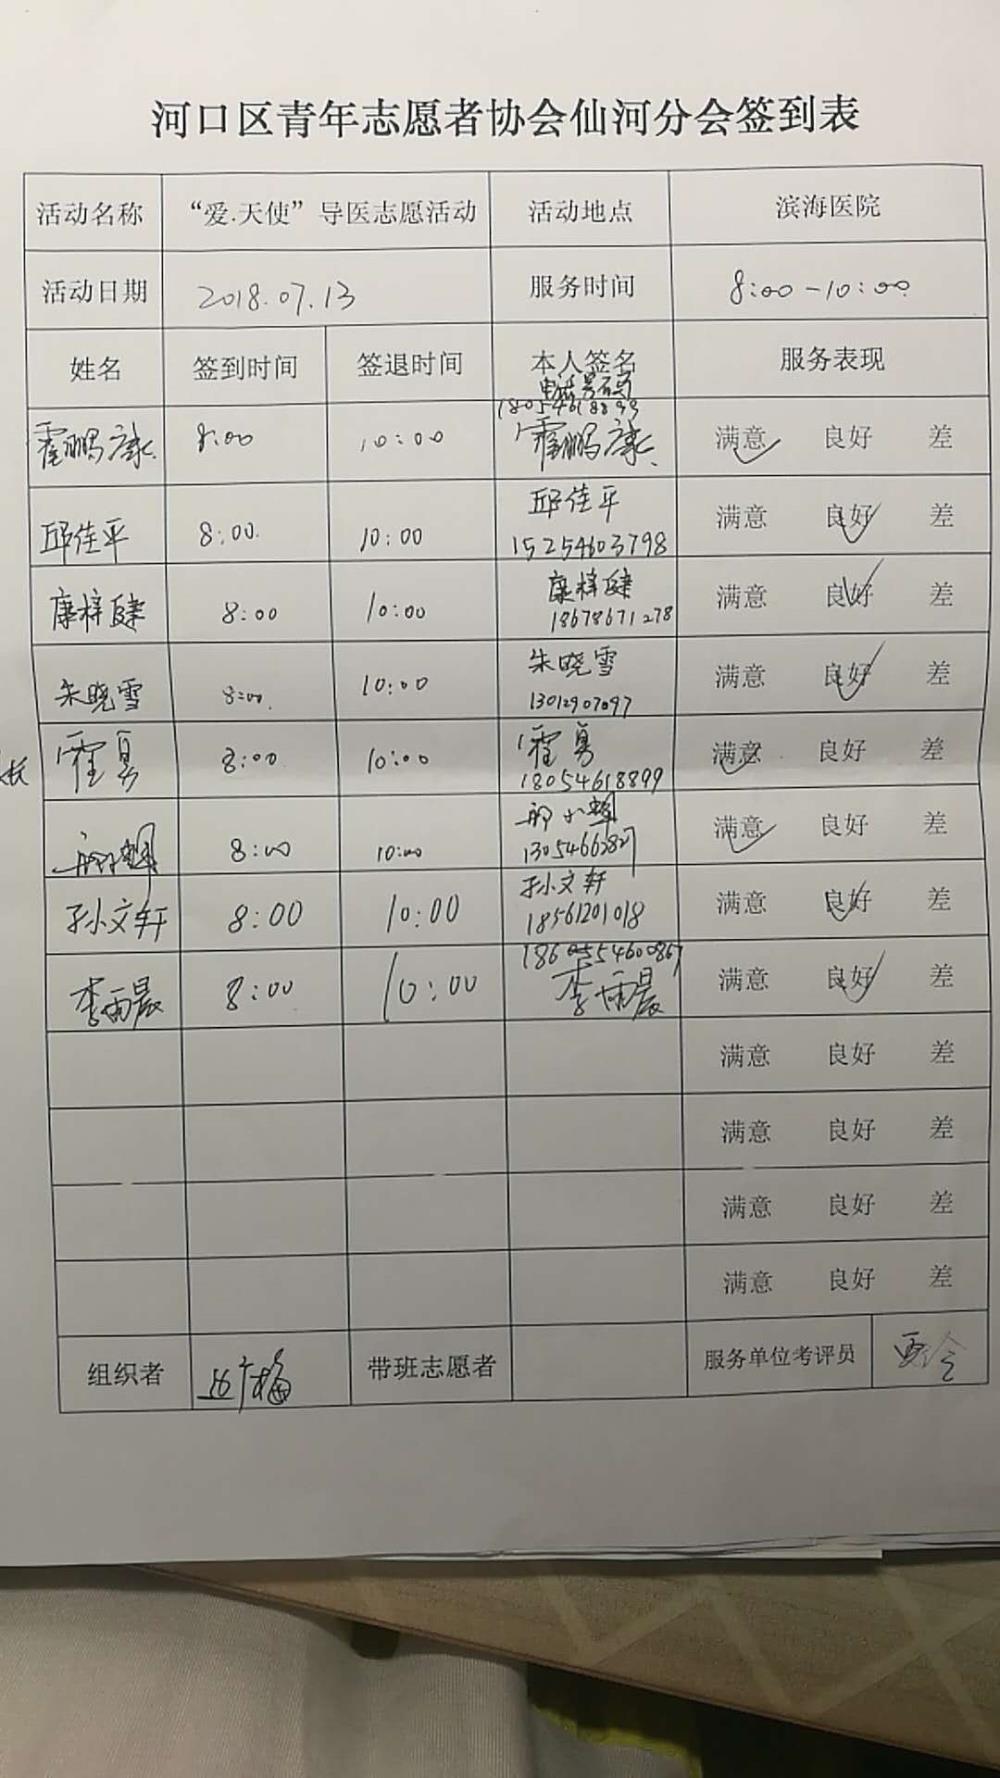 河口区青年志愿者协会仙河分会签到表
活动名称 “爱.天使”导医志愿活动 活动地点 滨海医院
活动日期 2018.07.13 服务时间 8:00-10:00
姓名 签到时间 签退时间 本人签名 服务表现
电话号码
18054618899
霍鹏康 8:00 10:00 霍鹏康 满意 良好 差
邱佳平 8:00 10:00 邱佳平 满意 良好 差
15254603798
康梓健 8:00 10:00 康梓健 满意 良好 差
18678671278
朱晓雪 8:00 10:00 朱晓雪 满意 良好 差
13012907097
霍勇 8:00 10:00 霍勇 满意 良好 差
18054618899
8:00 10:00 满意 良好 差
孙文轩 8:00 10:00 孙文轩 满意 良好 差
18561201018
李雨晨 8:00 10:00 李雨晨 满意 良好 差
满意 良好 差
满意 良好 差
满意 良好 差
满意 良好 差
组织者 带班志愿者 服务单位考评员